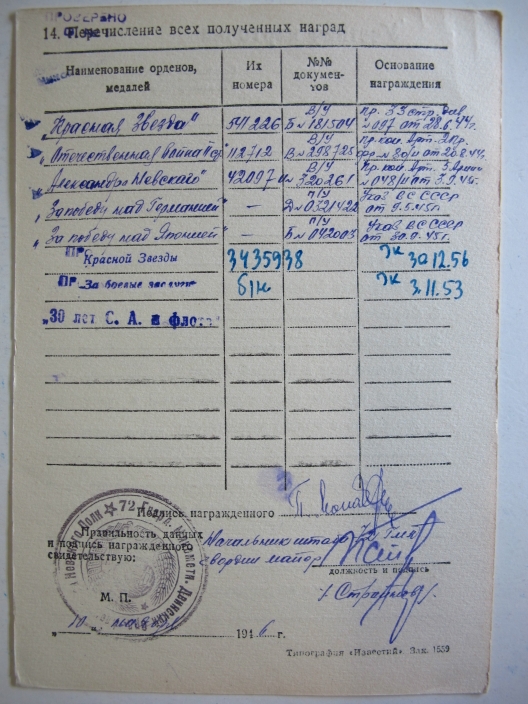 ПРОВЕРЕНО
14. Перечисление всех полученных наград
Наименование орденов, медалей
Их номера
№№ докумен-тов
Основание награждения
„Красная Звезда" 541226 В/У Б № 181504 Пр. 33 стр. див № 097 от 28.6.44г.
„Отечественная война 112712 В/У В № 298725
Александра Невского" 42097 В/У № 320261 № 048/н от 3.9.45г.
„За победу над Германией" — П/У Д № 0321422 Указ ВС СССР от 9.5.45г.
„За победу над Японией" — П/У Б № 042003 Указ ВС СССР от 30.9.45г.
Красной Звезды 3435938 Эк 30.12.56
За боевые заслуги б/н Эк 3.11.53
„30 лет С. А. и флота"
Подпись награжденного
Правильность данных и подпись награжденного свидетельствую:
Начальник штаба
гвардии майор
должность и подпись
М. П.
1946 г.
Типография «Известий» Зак. 1539